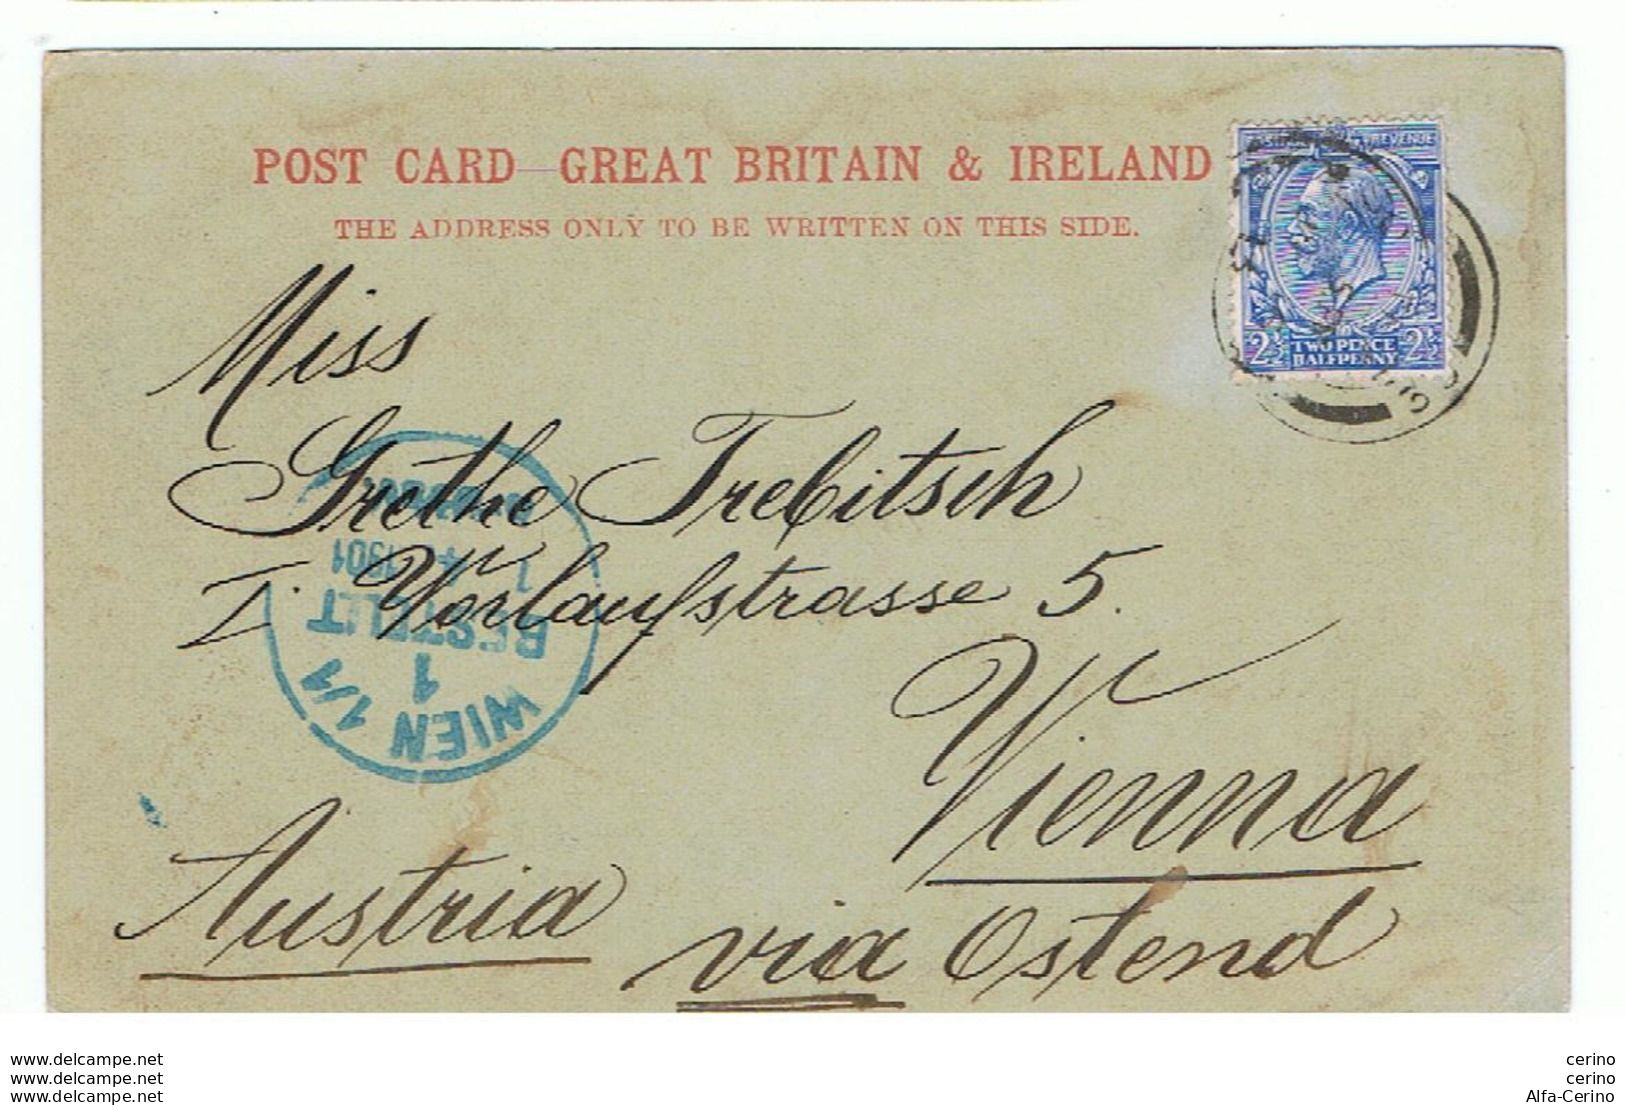 POST CARD—GREAT BRITAIN & IRELAND
THE ADDRESS ONLY TO BE WRITTEN ON THIS SIDE.
REVENUE
2½ TWO PENCE HALFPENNY 2½
Miss
Grethe Trebitsch
I. Vorlaufstrasse 5.
Vienna
Austria
via Ostend
WIEN 1/1
1
BESTELLT
1 4 1901
www.delcampe.net
www.delcampe.net
www.delcampe.net
cerino
cerino
Alfa-Cerino